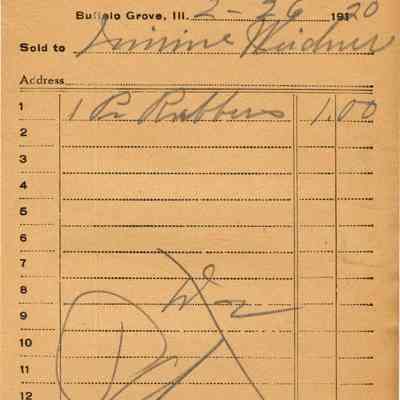 Buffalo Grove, Ill. 2-26 1920
Sold to Weidner
Address
1 1 Pr Rubbers 1.00
2
3
4
5
6
7
8
9
10
11
12